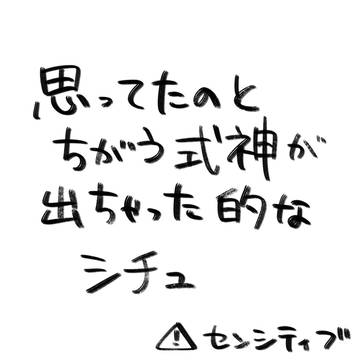 思ってたのと
ちがう式神が
出ちゃった的な
シチュ
⚠センシティブ